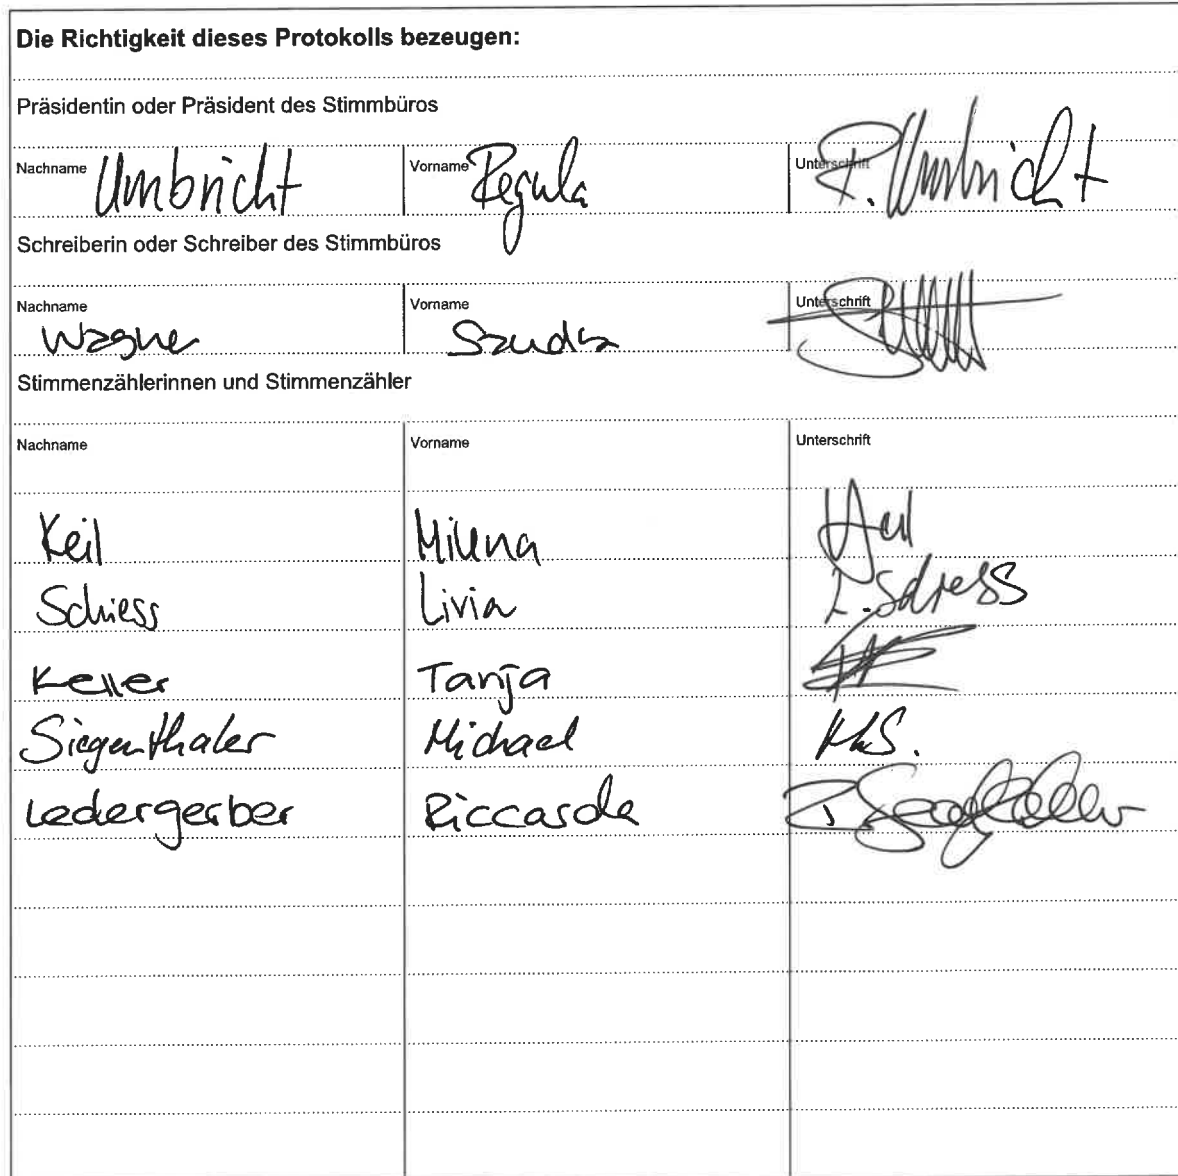 Die Richtigkeit dieses Protokolls bezeugen:
Präsidentin oder Präsident des Stimmbüros
Nachname Umbricht Vorname Regula Unterschrift R. Umbricht
Schreiberin oder Schreiber des Stimmbüros
Nachname Vorname Unterschrift
Wagner Sandra
Stimmenzählerinnen und Stimmenzähler
Nachname Vorname Unterschrift
Keil Milena
Schiess Livia L. Schiess
Keller Tanja
Siegenthaler Michael M.S.
Ledergerber Riccarda